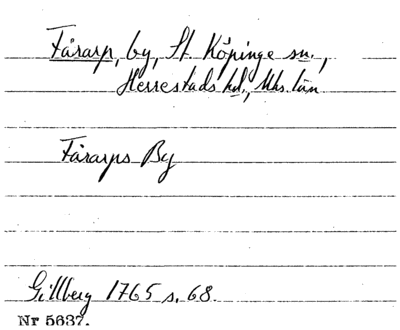 Fårarp, by, St. Köpinge sn.,
Herrestads hd., Mhs. län
Fårarps By
Gillberg 1765 s. 68.
Nr 5637.